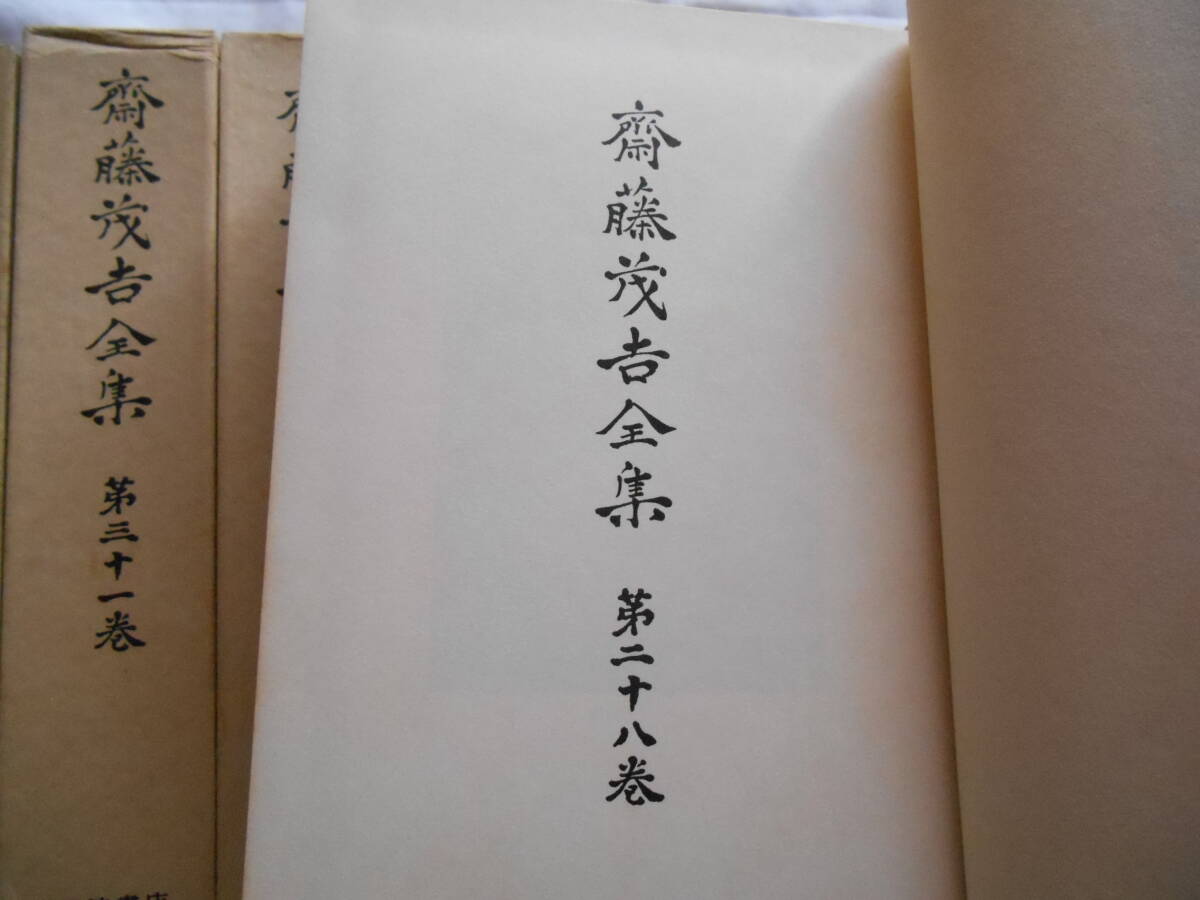 齋藤茂吉全集 第二十八巻
齋藤茂吉全集 第三十一巻
書店